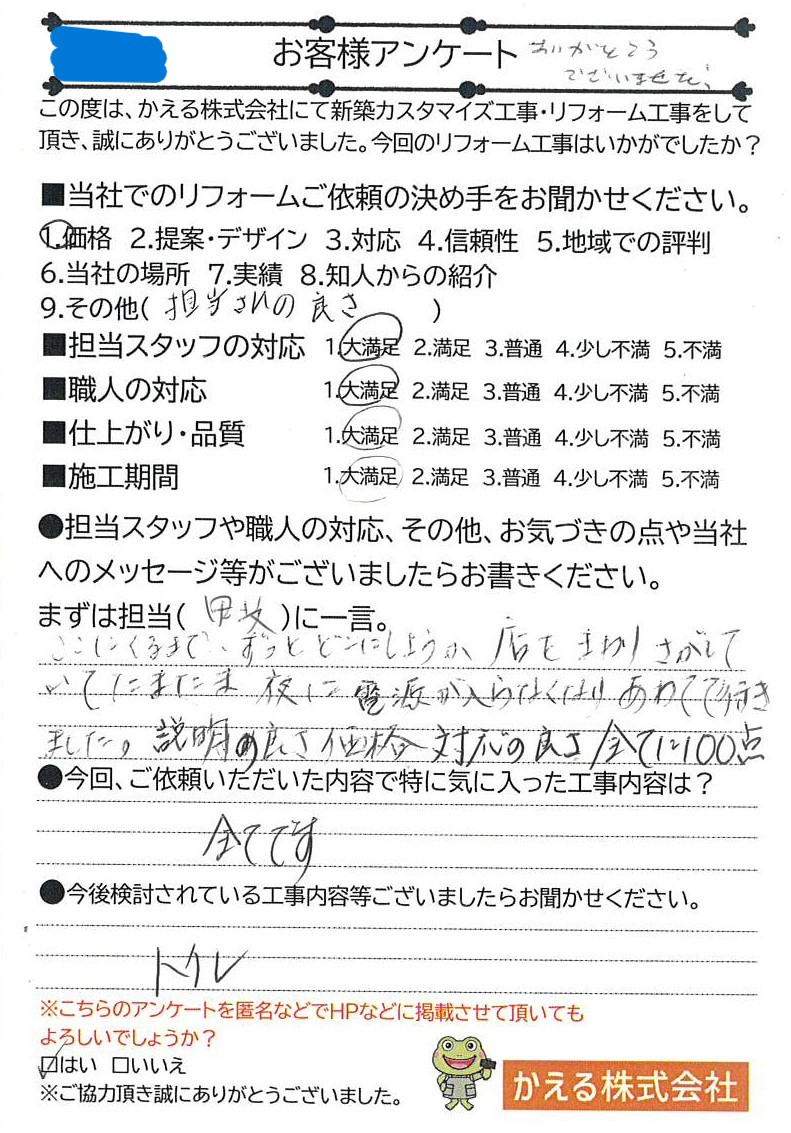 お客様アンケート ありがとう
ございました。
この度は、かえる株式会社にて新築カスタマイズ工事・リフォーム工事をして
頂き、誠にありがとうございました。今回のリフォーム工事はいかがでしたか？
■当社でのリフォームご依頼の決め手をお聞かせください。
1.価格 2.提案・デザイン 3.対応 4.信頼性 5.地域での評判
6.当社の場所 7.実績 8.知人からの紹介
9.その他( 担当されの良さ )
■担当スタッフの対応 1.大満足 2.満足 3.普通 4.少し不満 5.不満
■職人の対応 1.大満足 2.満足 3.普通 4.少し不満 5.不満
■仕上がり・品質 1.大満足 2.満足 3.普通 4.少し不満 5.不満
■施工期間 1.大満足 2.満足 3.普通 4.少し不満 5.不満
●担当スタッフや職人の対応、その他、お気づきの点や当社
へのメッセージ等がございましたらお書きください。
まずは担当( )に一言。
ここにくるまで、ずっとどこにしようか、店をまわりさがして
いてたまたま夜に電源が入らなくなりあわてて行き
ました。説明の良さ価格対応の良さ全てに100点
●今回、ご依頼いただいた内容で特に気に入った工事内容は？
全てです
●今後検討されている工事内容等ございましたらお聞かせください。
トイレ
※こちらのアンケートを匿名などでHPなどに掲載させて頂いても
よろしいでしょうか？
☑はい □いいえ
※ご協力頂き誠にありがとうございました。
かえる株式会社